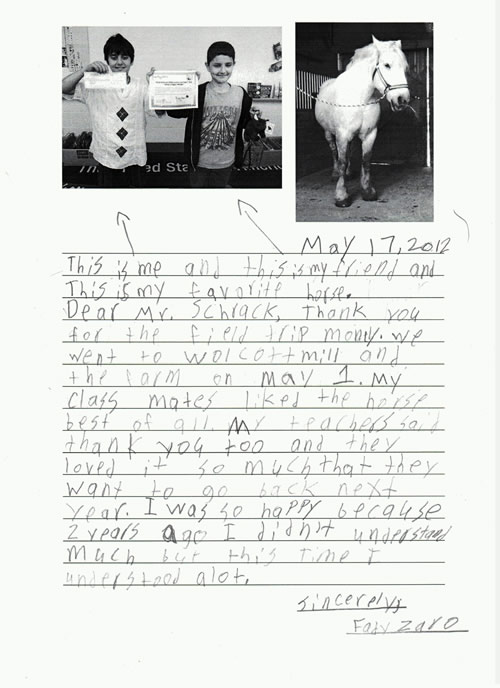 May 17, 2012
This is me and this is my friend and
This is my favorite horse.
Dear Mr. Schrack, thank you
for the field trip mony. we
went to wolcottmill and
the farm on may 1. my
class mates liked the horse
best of all. My teachers said
thank you too and they
loved it so much that they
want to go back next
year. I was so happy because
2 years ago I didn't understand
much but this time I
understood alot.
Sincerely,
Fady Zaro